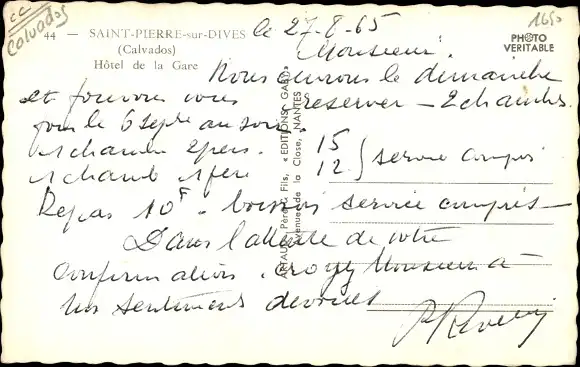 cc
Calvados
1650
44 — SAINT-PIERRE-sur-DIVES
(Calvados)
Hôtel de la Gare
PHOTO
VERITABLE
le 27-8-65
Monsieur.
Nous avons la demande
et pouvons vous réserver — 2 chambres
pour le 6 Septbre au soir.
1 chambre 2 pers. 15
1 chamb 1 pers 12 } service compris
Repas 10F - boisson service compris —
Dans l'attente de votre
confirmation. Croyez Monsieur à
nos sentiments dévoués
ARTAUD Père & Fils, «EDITIONS GABY»
Avenue de la Close, NANTES